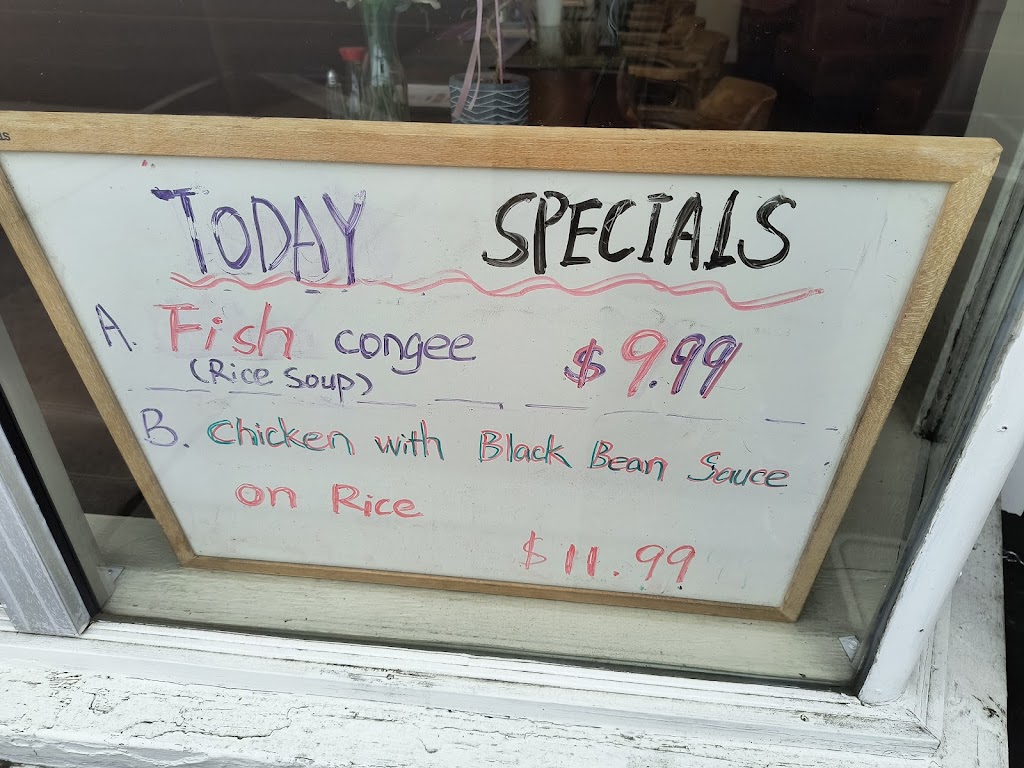 TODAY SPECIALS
A. Fish congee $9.99
(Rice Soup)
B. Chicken with Black Bean Sauce
on Rice
$11.99